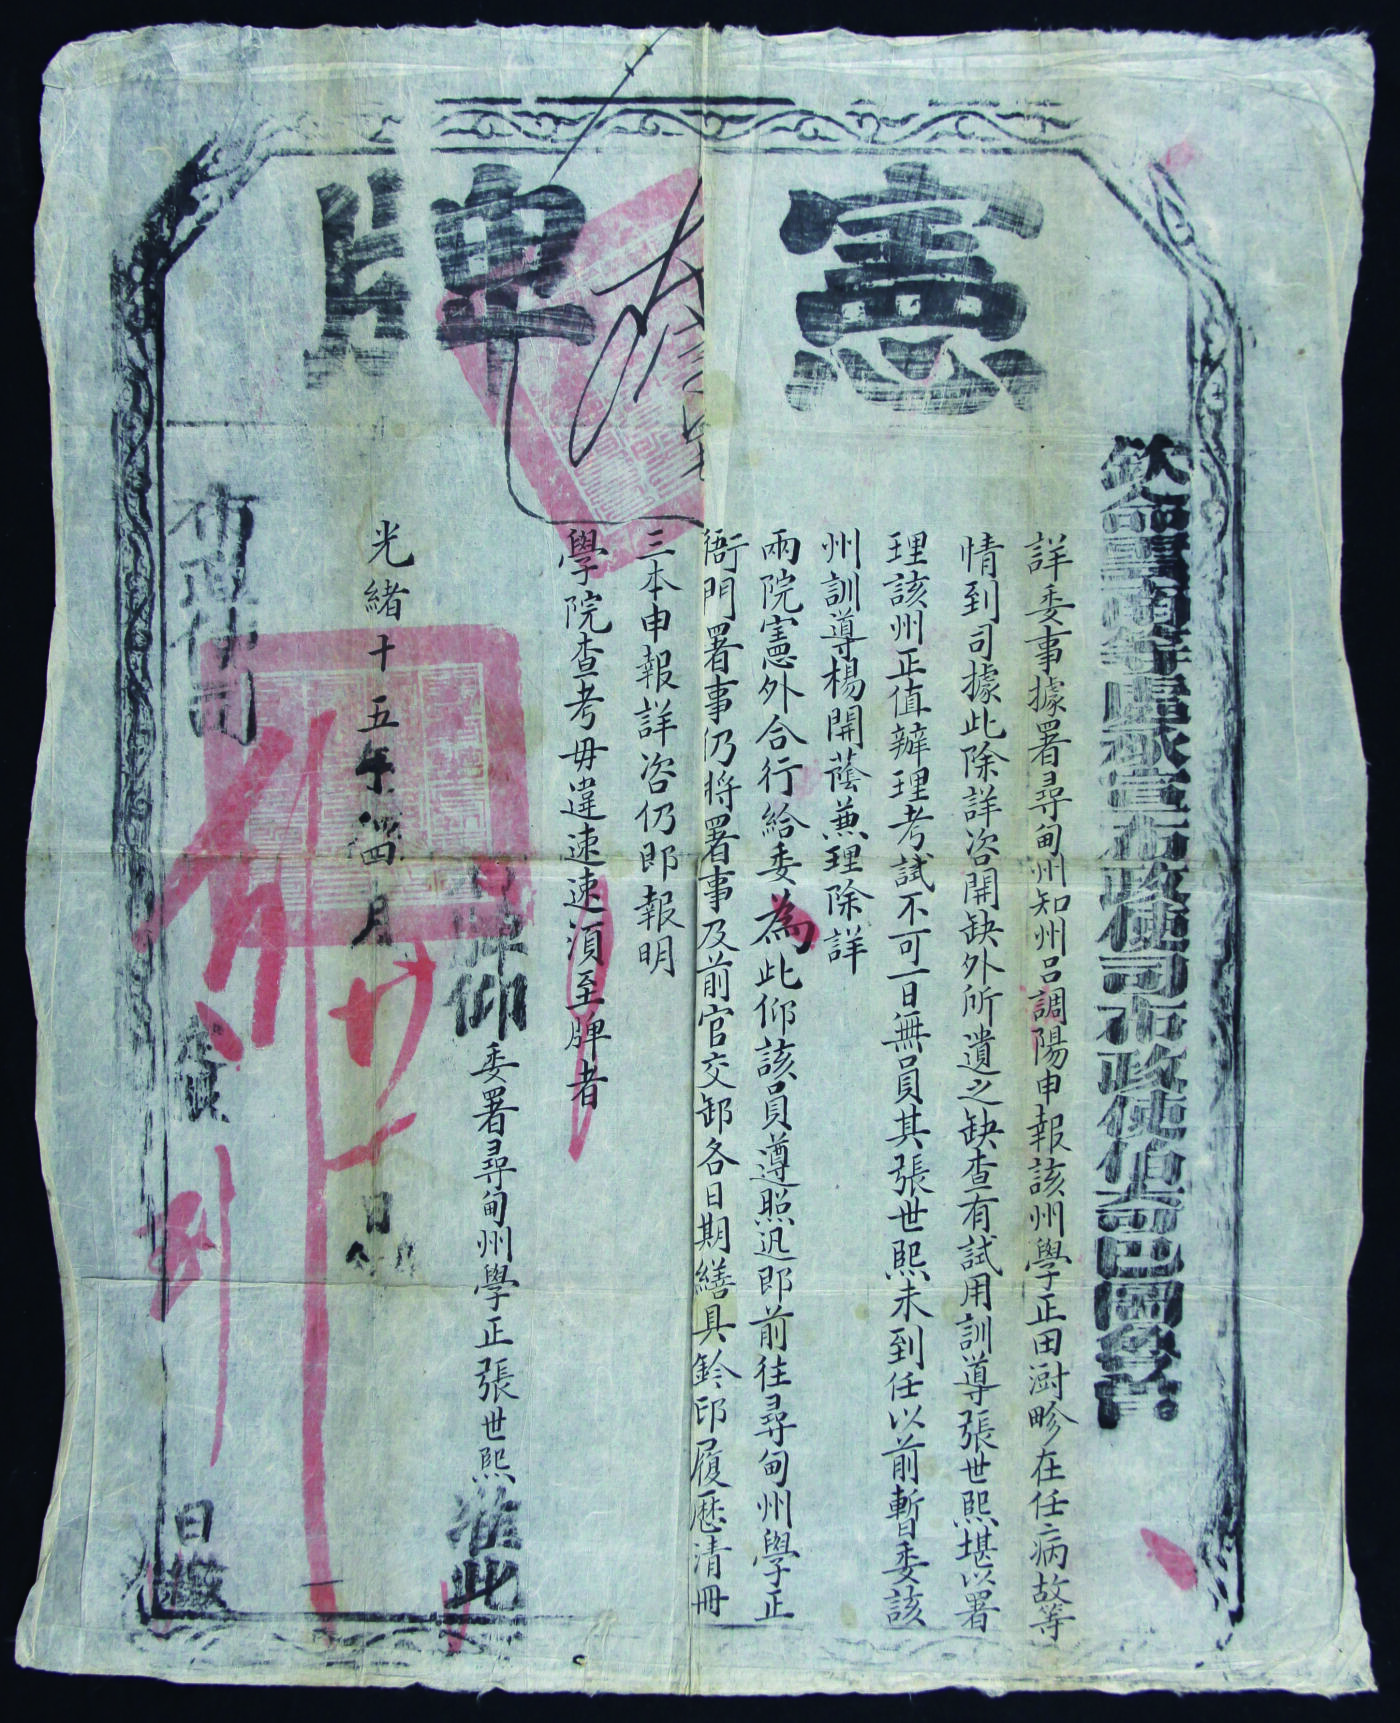 憲牌
欽命雲南等處承宣布政使司布政使伯奇巴圖魯曾
詳委事據署尋甸州知州呂調陽申報該州學正田澍畛在任病故等
情到司據此除詳咨開缺外所遺之缺查有試用訓導張世熙堪以署
理該州正值辦理考試不可一日無員其張世熙未到任以前暫委該
州訓導楊開蔭兼理除詳
兩院憲外合行給委為此仰該員遵照迅即前往尋甸州學正
衙門署事仍將署事及前官交卸各日期繕具鈐印履歷清冊
三本申報詳咨仍即報明
學院查考毋違速速須至牌者
牌仰委署尋甸州學正張世熙准此
光緒十五年四月廿十日
布政使司
日繳